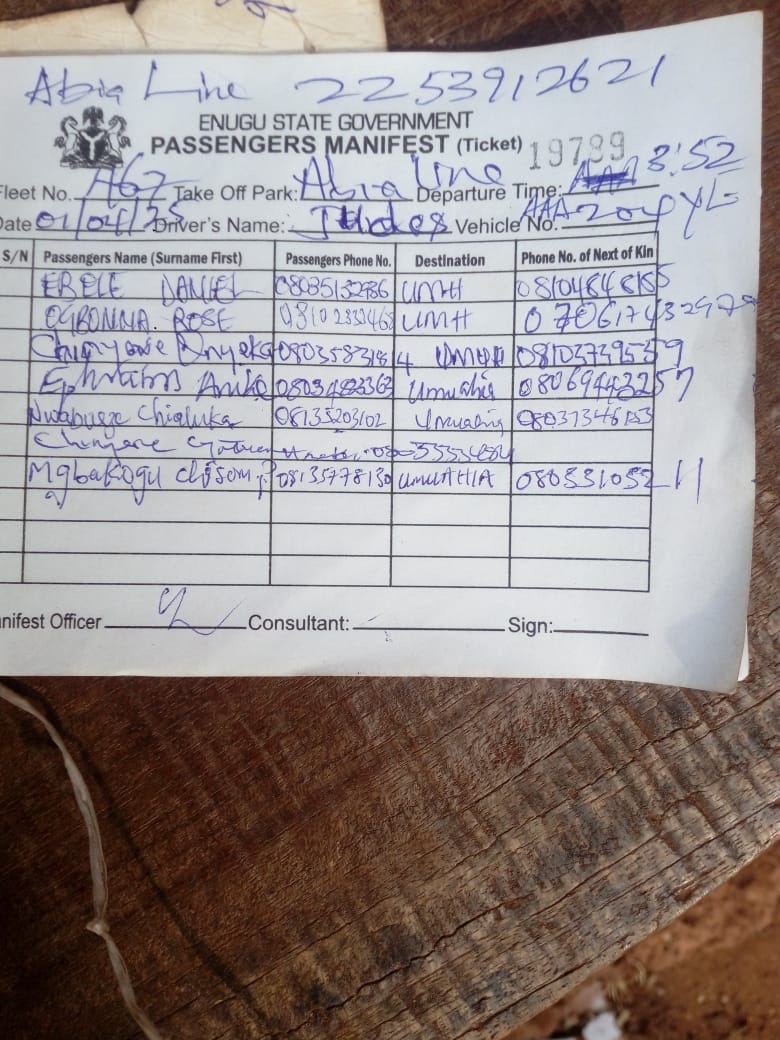 Abia Line 2253912621
ENUGU STATE GOVERNMENT
PASSENGERS MANIFEST (Ticket) 19789
Fleet No. A67 Take Off Park: Abia Line Departure Time: 3:52
Date 01/04/25 Driver's Name: Judes Vehicle No. AAA204YL
S/N Passengers Name (Surname First) Passengers Phone No. Destination Phone No. of Next of Kin
EBELE DANIEL 08035132986 UMH 08104848185
OGBONNA. ROSE UMH
Chinyere Onyeka 08035831814 08103739539
Ephraim 08034823363 Umuahia 08069443257
Nwabueze Chialuka 08135203102 Umuahia
Chinyere
Mgbakogu Chisom 08135778130 UMUAHIA 08033105211
Manifest Officer Consultant: Sign: